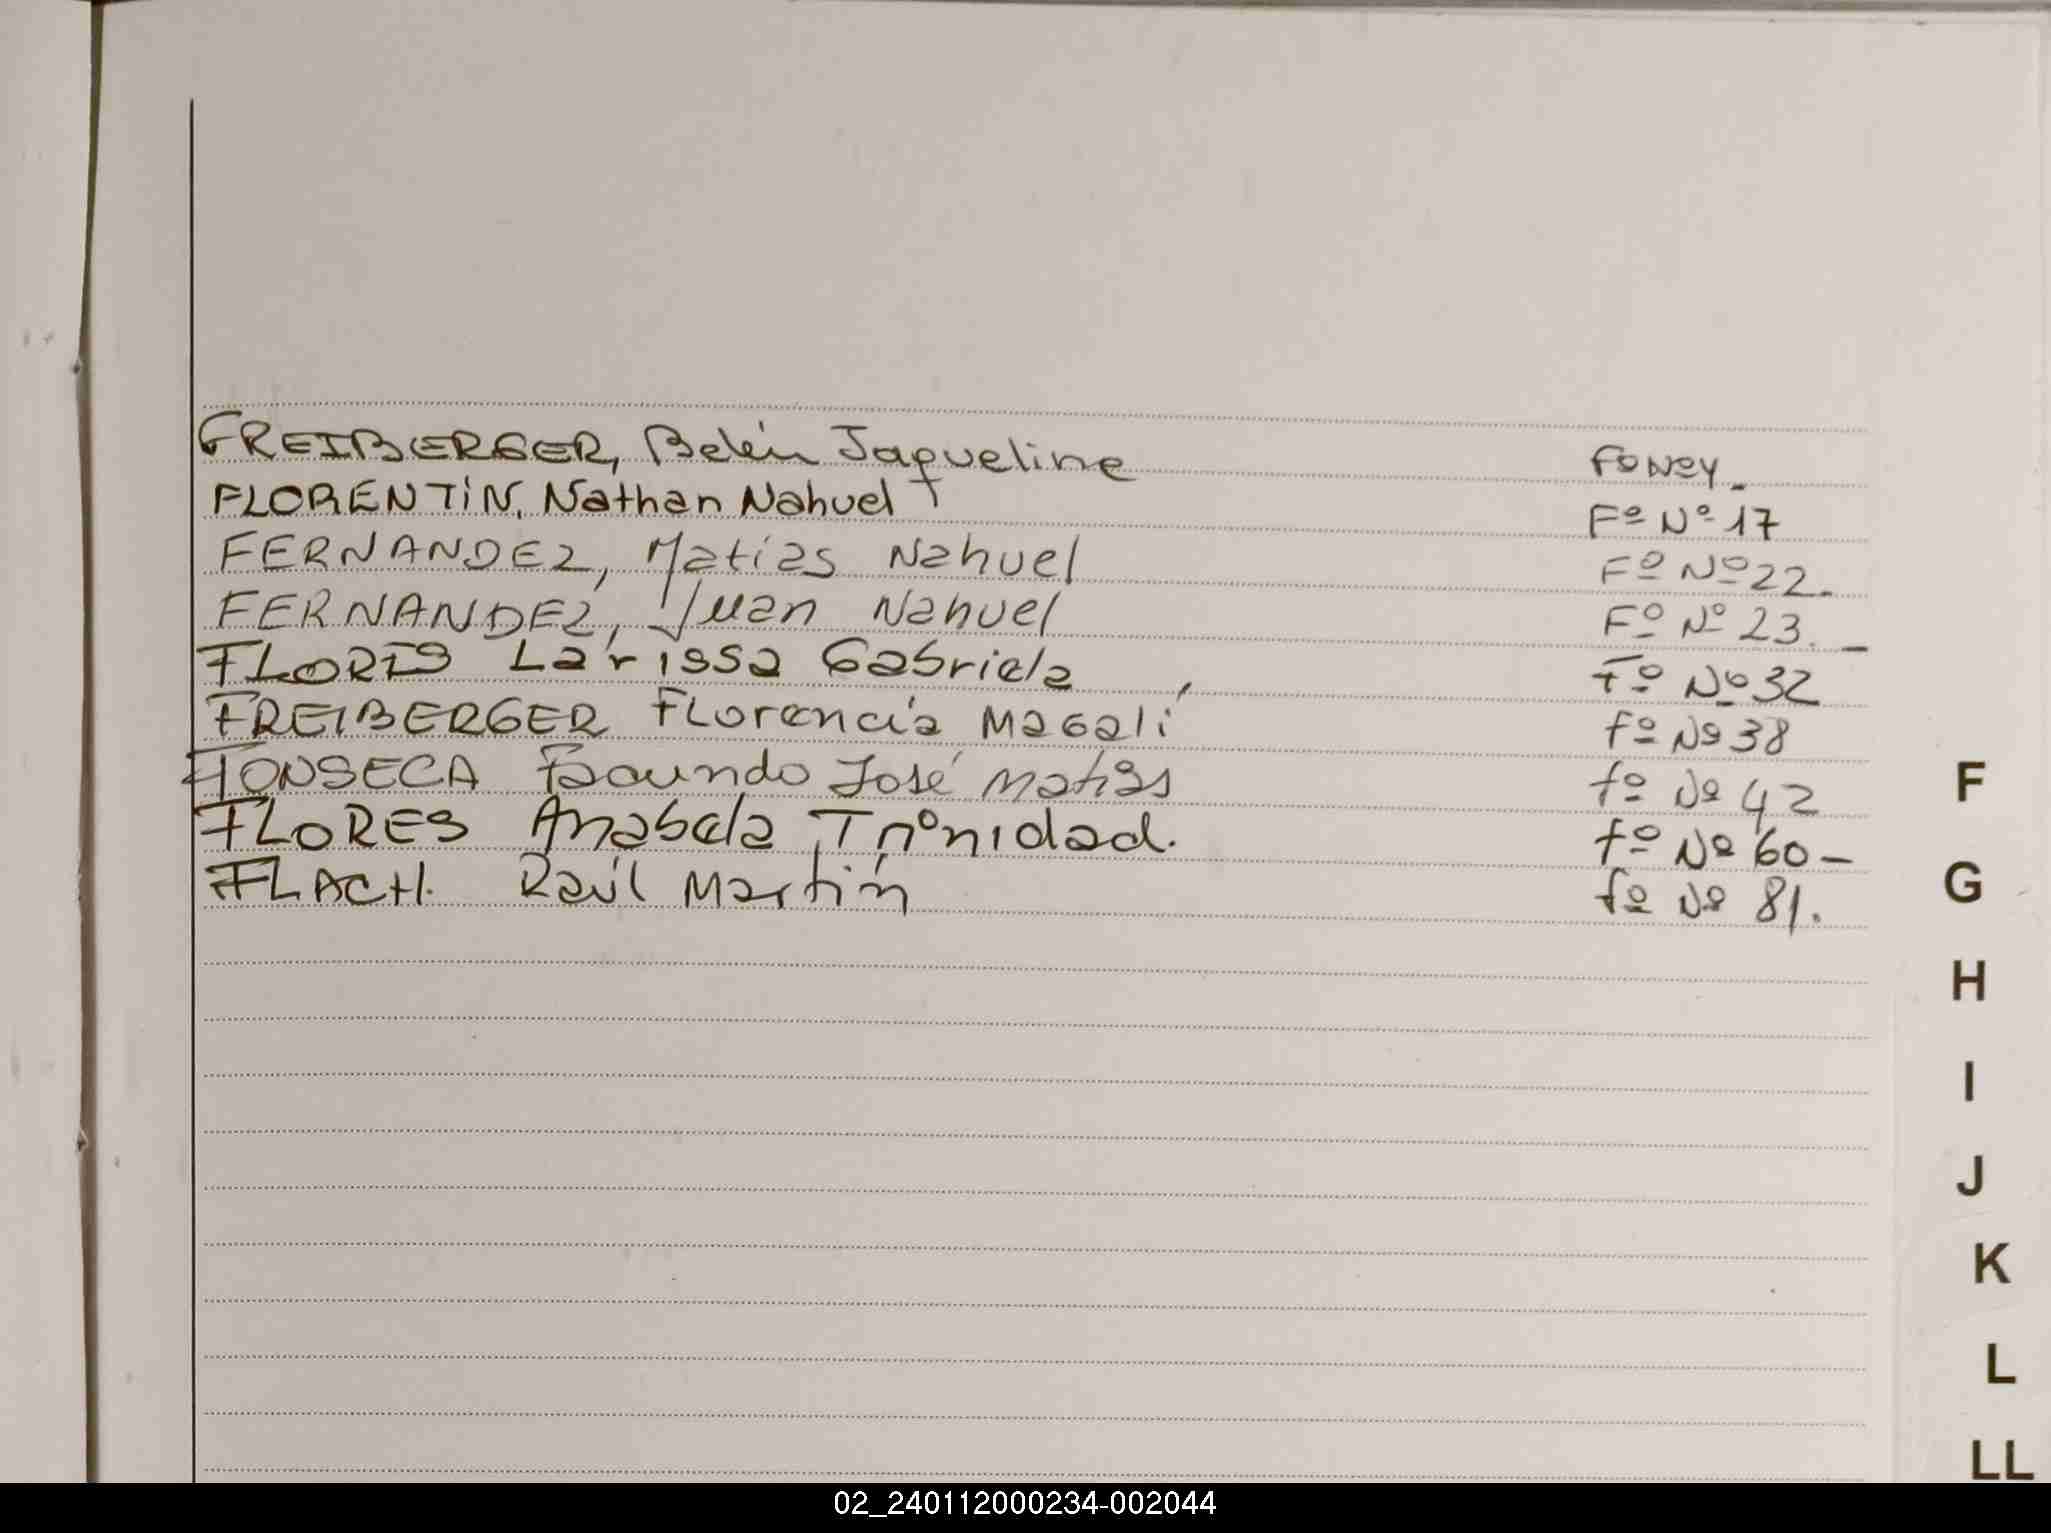 FREIBERGER, Belén Jaqueline Fº Nº 4
FLORENTÍN, Nathan Nahuel Fº Nº 17
FERNANDEZ, Matías Nahuel Fº Nº 22.
FERNANDEZ, Juan Nahuel Fº Nº 23. _
FLORES Larissa Gabriela Fº Nº 32
FREIBERGER Florencia Magalí Fº Nº 38
FONSECA Facundo José Matías fº Nº 42
FLORES Anabela Trinidad. fº Nº 60 -
FLACH. Raúl Martín fº Nº 81.
F
G
H
I
J
K
L
LL
02_240112000234-002044